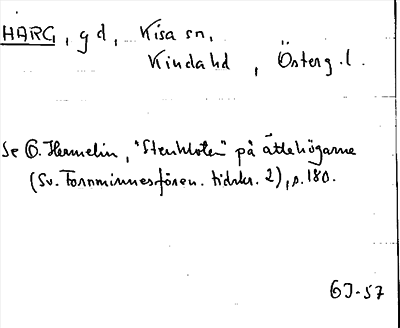 HARG, gd, Kisa sn,
Kinda hd, Österg.l.
Se O. Hermelin, "Stenkloten" på ättehögarne
(Sv. Fornminnesfören. tidskr. 2), s. 180.
63-57